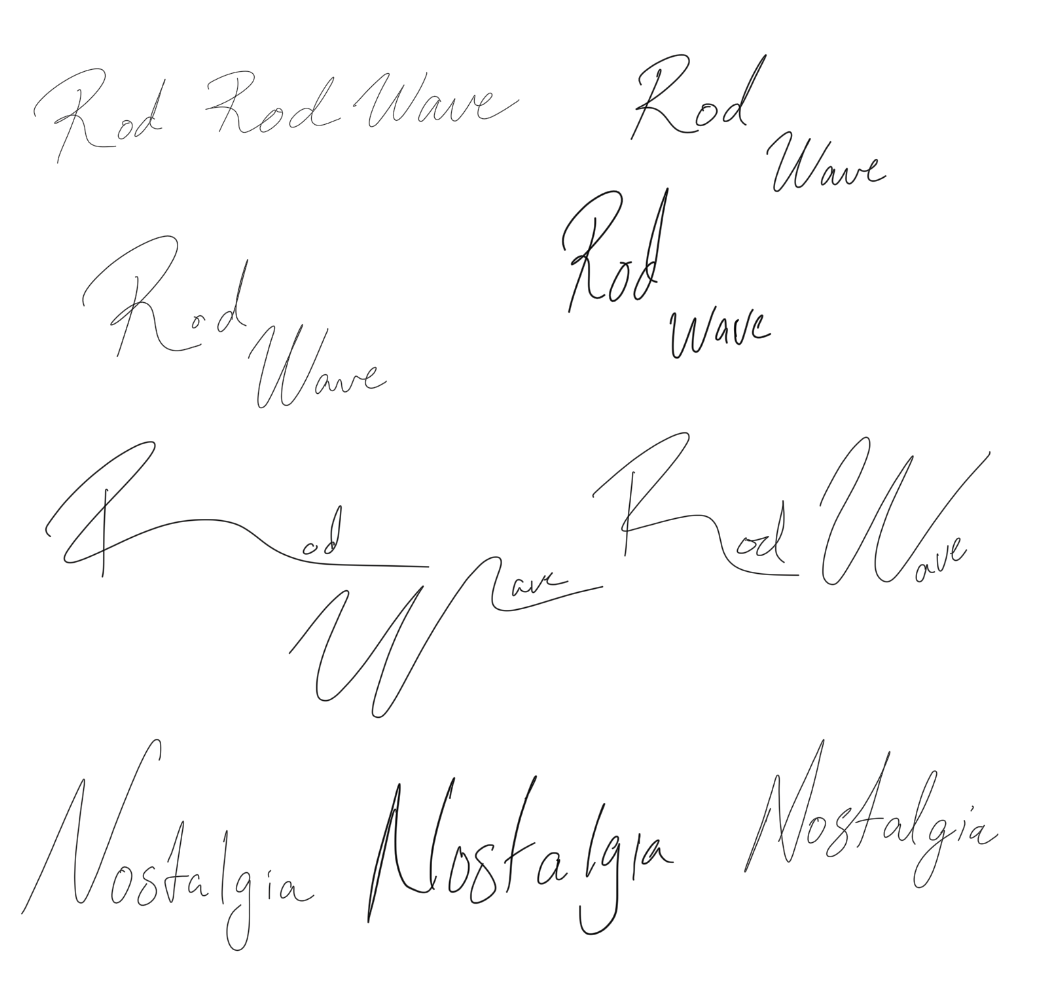 Rod Rod Wave
Rod
Wave
Rod
Wave
Rod
Wave
Rod
Wave
Rod Wave
Nostalgia Nostalgia Nostalgia